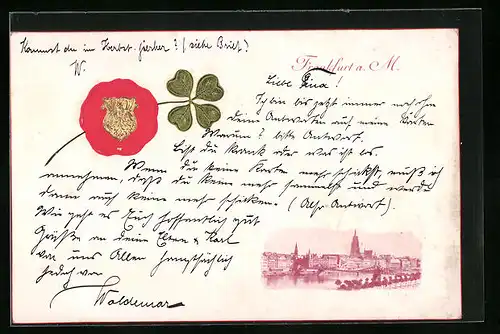 Kommst du im Herbst hierher? (siehe Brief)
W.
Frankfurt a. M.
Liebe Tina!
Ich bin bis jetzt immer noch ohne
deine Antworten auf meine Karten
Warum? bitte Antwort.
Bist du krank oder was ist es.
Wenn du keine Karten mehr schickst, muß ich
annehmen, daß du keine mehr sammelst und werde
dann auch keine mehr schicken. (Also Antwort).
Wie geht es Euch hoffentlich gut
Grüße an deine Eltern & Karl
von uns Allen hauptsächlich
jedoch von
Woldemar